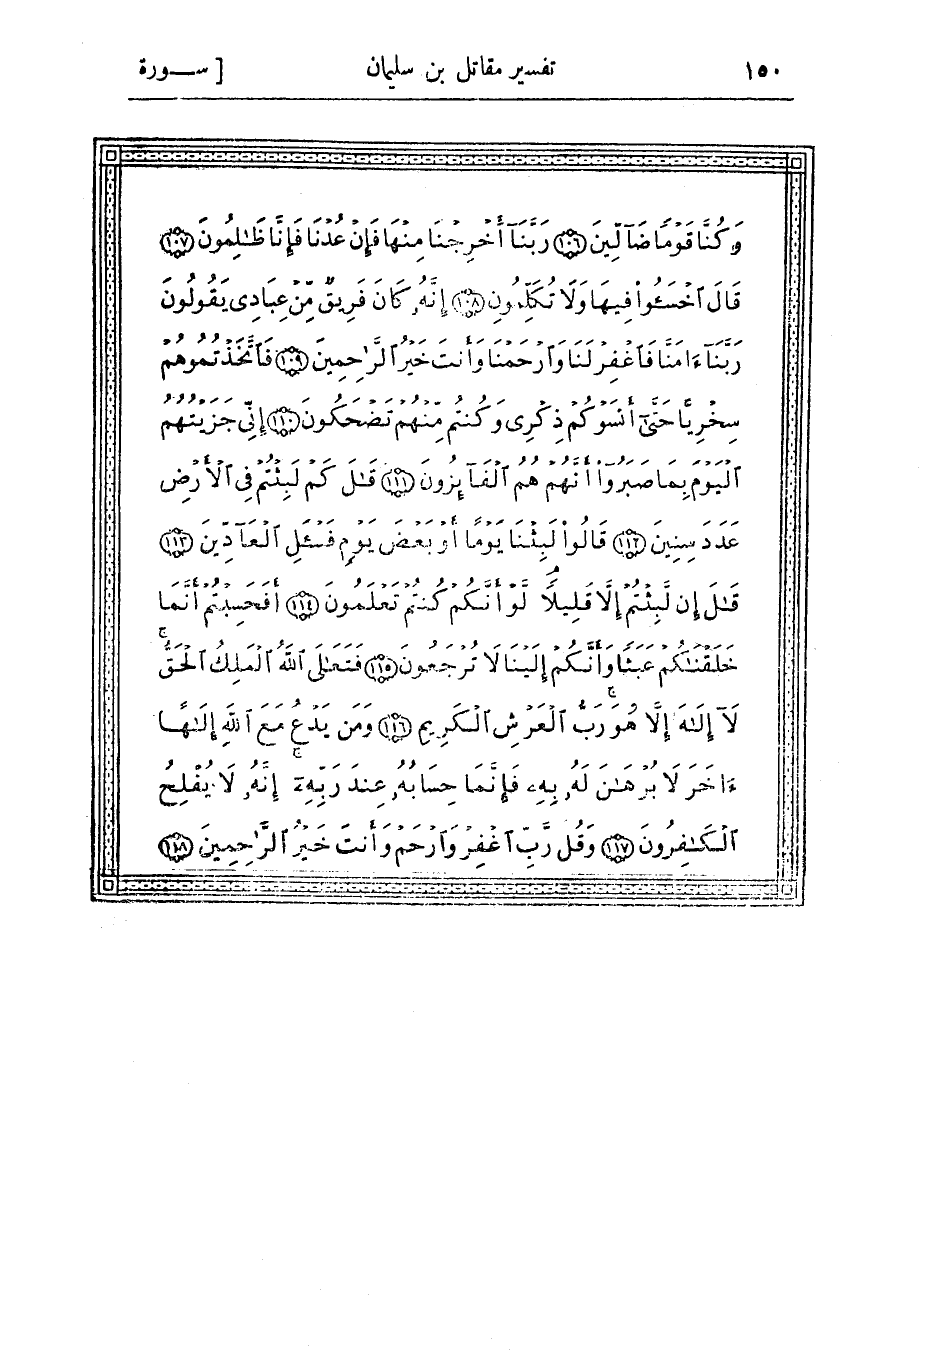 ١٥٠ تفسير مقاتل بن سليمان [ ســورة
وَكُنَّا قَوْمًا ضَآلِّينَ ١٠٦ رَبَّنَآ أَخْرِجْنَا مِنْهَا فَإِنْ عُدْنَا فَإِنَّا ظَٰلِمُونَ ١٠٧
قَالَ ٱخْسَـُٔوا۟ فِيهَا وَلَا تُكَلِّمُونِ ١٠٨ إِنَّهُۥ كَانَ فَرِيقٌ مِّنْ عِبَادِى يَقُولُونَ
رَبَّنَآ ءَامَنَّا فَٱغْفِرْ لَنَا وَٱرْحَمْنَا وَأَنتَ خَيْرُ ٱلرَّٰحِمِينَ ١٠٩ فَٱتَّخَذْتُمُوهُمْ
سِخْرِيًّا حَتَّىٰٓ أَنسَوْكُمْ ذِكْرِى وَكُنتُم مِّنْهُمْ تَضْحَكُونَ ١١٠ إِنِّى جَزَيْتُهُمُ
ٱلْيَوْمَ بِمَا صَبَرُوٓا۟ أَنَّهُمْ هُمُ ٱلْفَآئِزُونَ ١١١ قَٰلَ كَمْ لَبِثْتُمْ فِى ٱلْأَرْضِ
عَدَدَ سِنِينَ ١١٢ قَالُوا۟ لَبِثْنَا يَوْمًا أَوْ بَعْضَ يَوْمٍ فَسْـَٔلِ ٱلْعَآدِّينَ ١١٣
قَٰلَ إِن لَّبِثْتُمْ إِلَّا قَلِيلًا لَّوْ أَنَّكُمْ كُنتُمْ تَعْلَمُونَ ١١٤ أَفَحَسِبْتُمْ أَنَّمَا
خَلَقْنَٰكُمْ عَبَثًا وَأَنَّكُمْ إِلَيْنَا لَا تُرْجَعُونَ ١١٥ فَتَعَٰلَى ٱللَّهُ ٱلْمَلِكُ ٱلْحَقُّ ۖ
لَآ إِلَٰهَ إِلَّا هُوَ رَبُّ ٱلْعَرْشِ ٱلْكَرِيمِ ١١٦ وَمَن يَدْعُ مَعَ ٱللَّهِ إِلَٰهًا
ءَاخَرَ لَا بُرْهَٰنَ لَهُۥ بِهِۦ فَإِنَّمَا حِسَابُهُۥ عِندَ رَبِّهِۦٓ ۚ إِنَّهُۥ لَا يُفْلِحُ
ٱلْكَٰفِرُونَ ١١٧ وَقُل رَّبِّ ٱغْفِرْ وَٱرْحَمْ وَأَنتَ خَيْرُ ٱلرَّٰحِمِينَ ١١٨